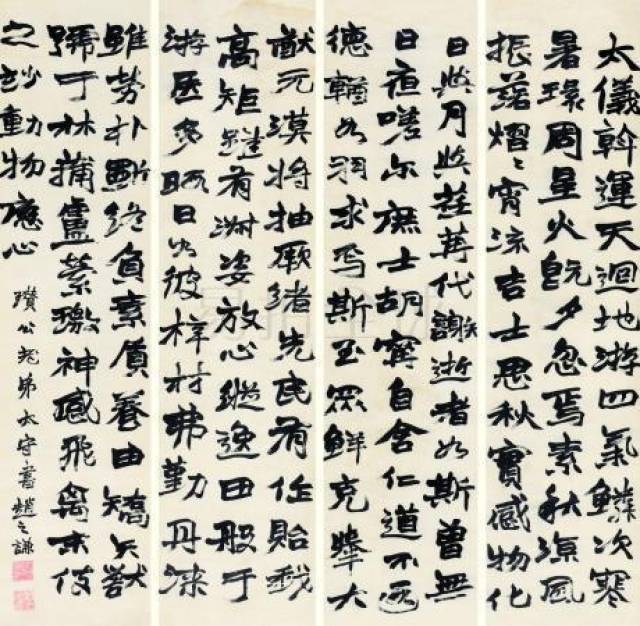 太儀斡運天迴地游四氣鱗次寒
暑環周星火既夕忽焉素秋涼風
振落熠〻宵流吉士思秋實感物化
日與月與荏苒代謝逝者如斯曾無
日夜嗟尔庶士胡寧自舍仁道不遐
德輶如羽求焉斯至眾鮮克舉大
猷元漠將抽厥緒先民有作貽我
高矩雖有淑姿放心縱逸田般于
游居多暇日如彼梓材弗勤丹漆
雖勞朴斲終負素質養由矯矢獸
號于林蒲盧縈繳神感飛禽末伎
之妙動物應心
瓚公老弟太守書趙之謙
易拍全球